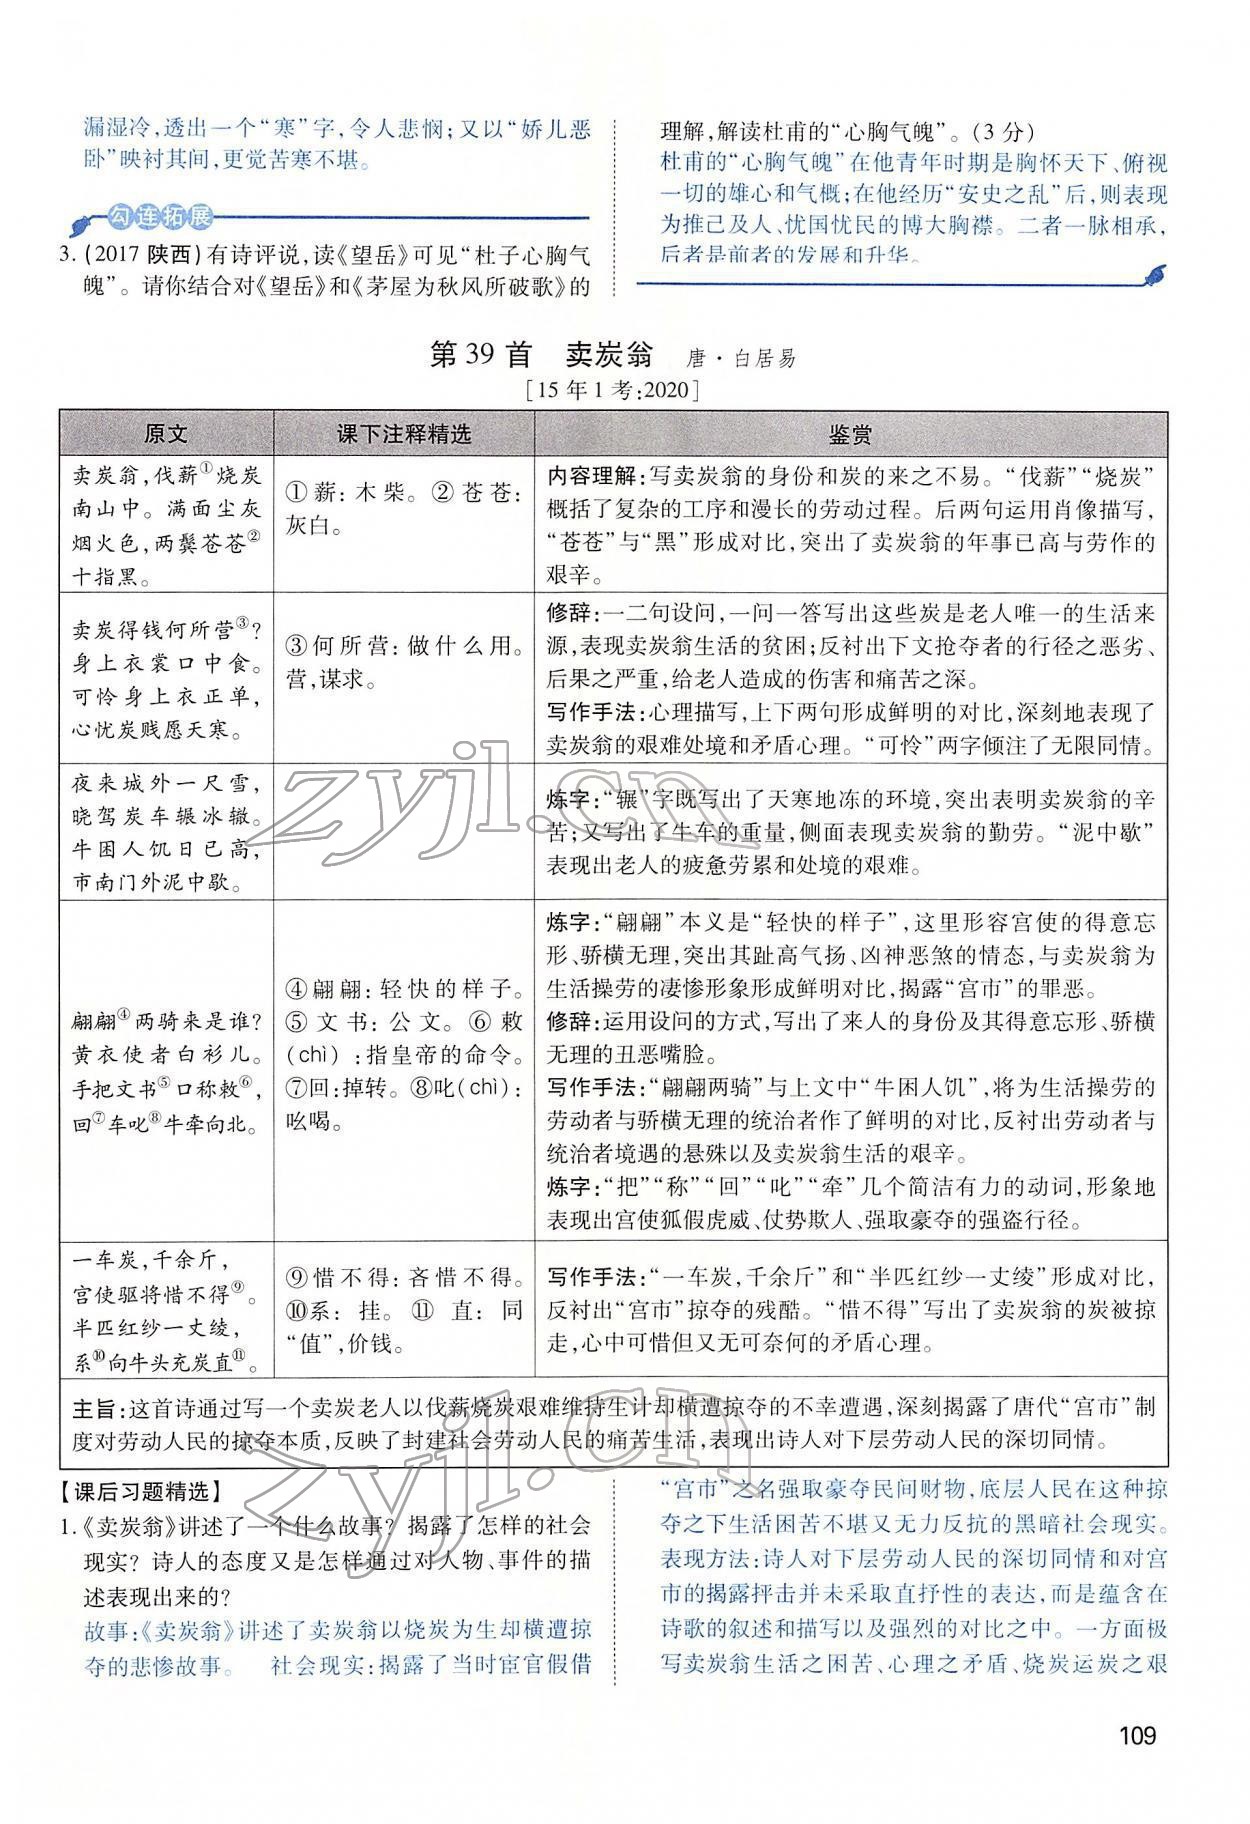 漏湿冷,透出一个“寒”字,令人悲悯;又以“娇儿恶
卧”映衬其间,更觉苦寒不堪。
勾连拓展
3. (2017 陕西)有诗评说,读《望岳》可见“杜子心胸气
魄”。请你结合对《望岳》和《茅屋为秋风所破歌》的
理解,解读杜甫的“心胸气魄”。(3 分)
杜甫的“心胸气魄”在他青年时期是胸怀天下、俯视
一切的雄心和气概;在他经历“安史之乱”后,则表现
为推己及人、忧国忧民的博大胸襟。二者一脉相承,
后者是前者的发展和升华。
第 39 首 卖炭翁 唐·白居易
[15 年 1 考:2020]
原文
课下注释精选
鉴赏
卖炭翁,伐薪①烧炭
南山中。满面尘灰
烟火色,两鬓苍苍②
十指黑。
①薪:木柴。②苍苍:
灰白。
内容理解:写卖炭翁的身份和炭的来之不易。“伐薪”“烧炭”
概括了复杂的工序和漫长的劳动过程。后两句运用肖像描写,
“苍苍”与“黑”形成对比,突出了卖炭翁的年事已高与劳作的
艰辛。
卖炭得钱何所营③?
身上衣裳口中食。
可怜身上衣正单,
心忧炭贱愿天寒。
③何所营:做什么用。
营,谋求。
修辞:一二句设问,一问一答写出这些炭是老人唯一的生活来
源,表现卖炭翁生活的贫困;反衬出下文抢夺者的行径之恶劣、
后果之严重,给老人造成的伤害和痛苦之深。
写作手法:心理描写,上下两句形成鲜明的对比,深刻地表现了
卖炭翁的艰难处境和矛盾心理。“可怜”两字倾注了无限同情。
夜来城外一尺雪,
晓驾炭车辗冰辙。
牛困人饥日已高,
市南门外泥中歇。
炼字:“辗”字既写出了天寒地冻的环境,突出表明卖炭翁的辛
苦;又写出了牛车的重量,侧面表现卖炭翁的勤劳。“泥中歇”
表现出老人的疲惫劳累和处境的艰难。
翩翩④两骑来是谁?
黄衣使者白衫儿。
手把文书⑤口称敕⑥,
回⑦车叱⑧牛牵向北。
④翩翩:轻快的样子。
⑤文书:公文。⑥敕
(chì):指皇帝的命令。
⑦回:掉转。⑧叱(chì):
吆喝。
炼字:“翩翩”本义是“轻快的样子”,这里形容宫使的得意忘
形、骄横无理,突出其趾高气扬、凶神恶煞的情态,与卖炭翁为
生活操劳的凄惨形象形成鲜明对比,揭露“宫市”的罪恶。
修辞:运用设问的方式,写出了来人的身份及其得意忘形、骄横
无理的丑恶嘴脸。
写作手法:“翩翩两骑”与上文中“牛困人饥”,将为生活操劳的
劳动者与骄横无理的统治者作了鲜明的对比,反衬出劳动者与
统治者境遇的悬殊以及卖炭翁生活的艰辛。
炼字:“把”“称”“回”“叱”“牵”几个简洁有力的动词,形象地
表现出宫使狐假虎威、仗势欺人、强取豪夺的强盗行径。
一车炭,千余斤,
宫使驱将惜不得⑨。
半匹红纱一丈绫,
系⑩向牛头充炭直⑪。
⑨惜不得:吝惜不得。
⑩系:挂。⑪直:同
“值”,价钱。
写作手法:“一车炭,千余斤”和“半匹红纱一丈绫”形成对比,
反衬出“宫市”掠夺的残酷。“惜不得”写出了卖炭翁的炭被掠
走,心中可惜但又无可奈何的矛盾心理。
主旨:这首诗通过写一个卖炭老人以伐薪烧炭艰难维持生计却横遭掠夺的不幸遭遇,深刻揭露了唐代“宫市”制
度对劳动人民的掠夺本质,反映了封建社会劳动人民的痛苦生活,表现出诗人对下层劳动人民的深切同情。
【课后习题精选】
1.《卖炭翁》讲述了一个什么故事?揭露了怎样的社会
现实?诗人的态度又是怎样通过对人物、事件的描
述表现出来的?
故事:《卖炭翁》讲述了卖炭翁以烧炭为生却横遭掠
夺的悲惨故事。 社会现实:揭露了当时宦官假借
“宫市”之名强取豪夺民间财物,底层人民在这种掠
夺之下生活困苦不堪又无力反抗的黑暗社会现实。
表现方法:诗人对下层劳动人民的深切同情和对宫
市的揭露抨击并未采取直抒性的表达,而是蕴含在
诗歌的叙述和描写以及强烈的对比之中。一方面极
写卖炭翁生活之困苦、心理之矛盾、烧炭运炭之艰
109
zyjl.cn
zyjl.cn